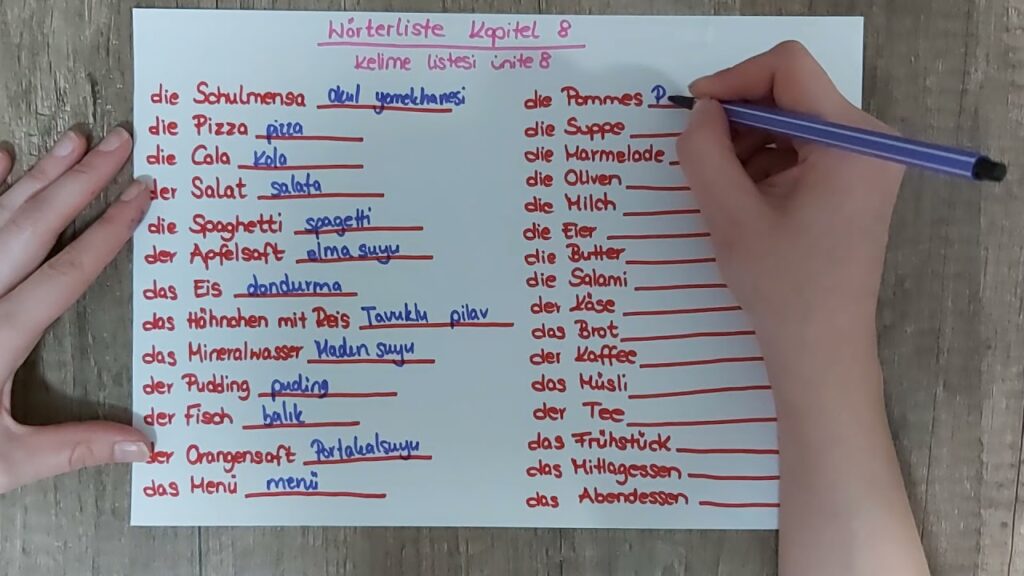 Wörterliste Kapitel 8
Kelime listesi ünite 8
die Schulmensa okul yemekhanesi
die Pizza pizza
die Cola Kola
der Salat salata
die Spaghetti spagetti
der Apfelsaft elma suyu
das Eis dondurma
das Hähnchen mit Reis Tavuklu pilav
das Mineralwasser Maden suyu
der Pudding puding
der Fisch balık
der Orangensaft Portakalsuyu
das Menü menü
die Pommes P
die Suppe
die Marmelade
die Oliven
die Milch
die Eier
die Butter
die Salami
der Käse
das Brot
der Kaffee
das Müsli
der Tee
das Frühstück
das Mittagessen
das Abendessen